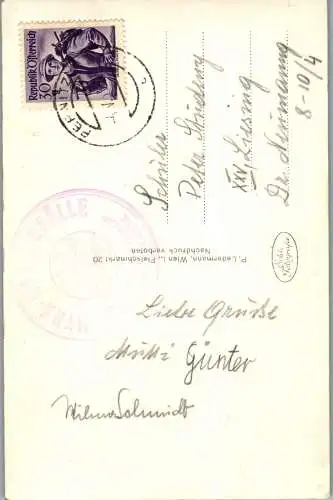 Republik Österreich
30
PERN
Schüler
Peter
XXV Liesing
Dr. Neumanng
8-10/4
P. Ledermann, Wien I., Fleischmarkt 20
Nachdruck verboten
Liebe Grüße
Mutti Günter
Wilma Schmidt